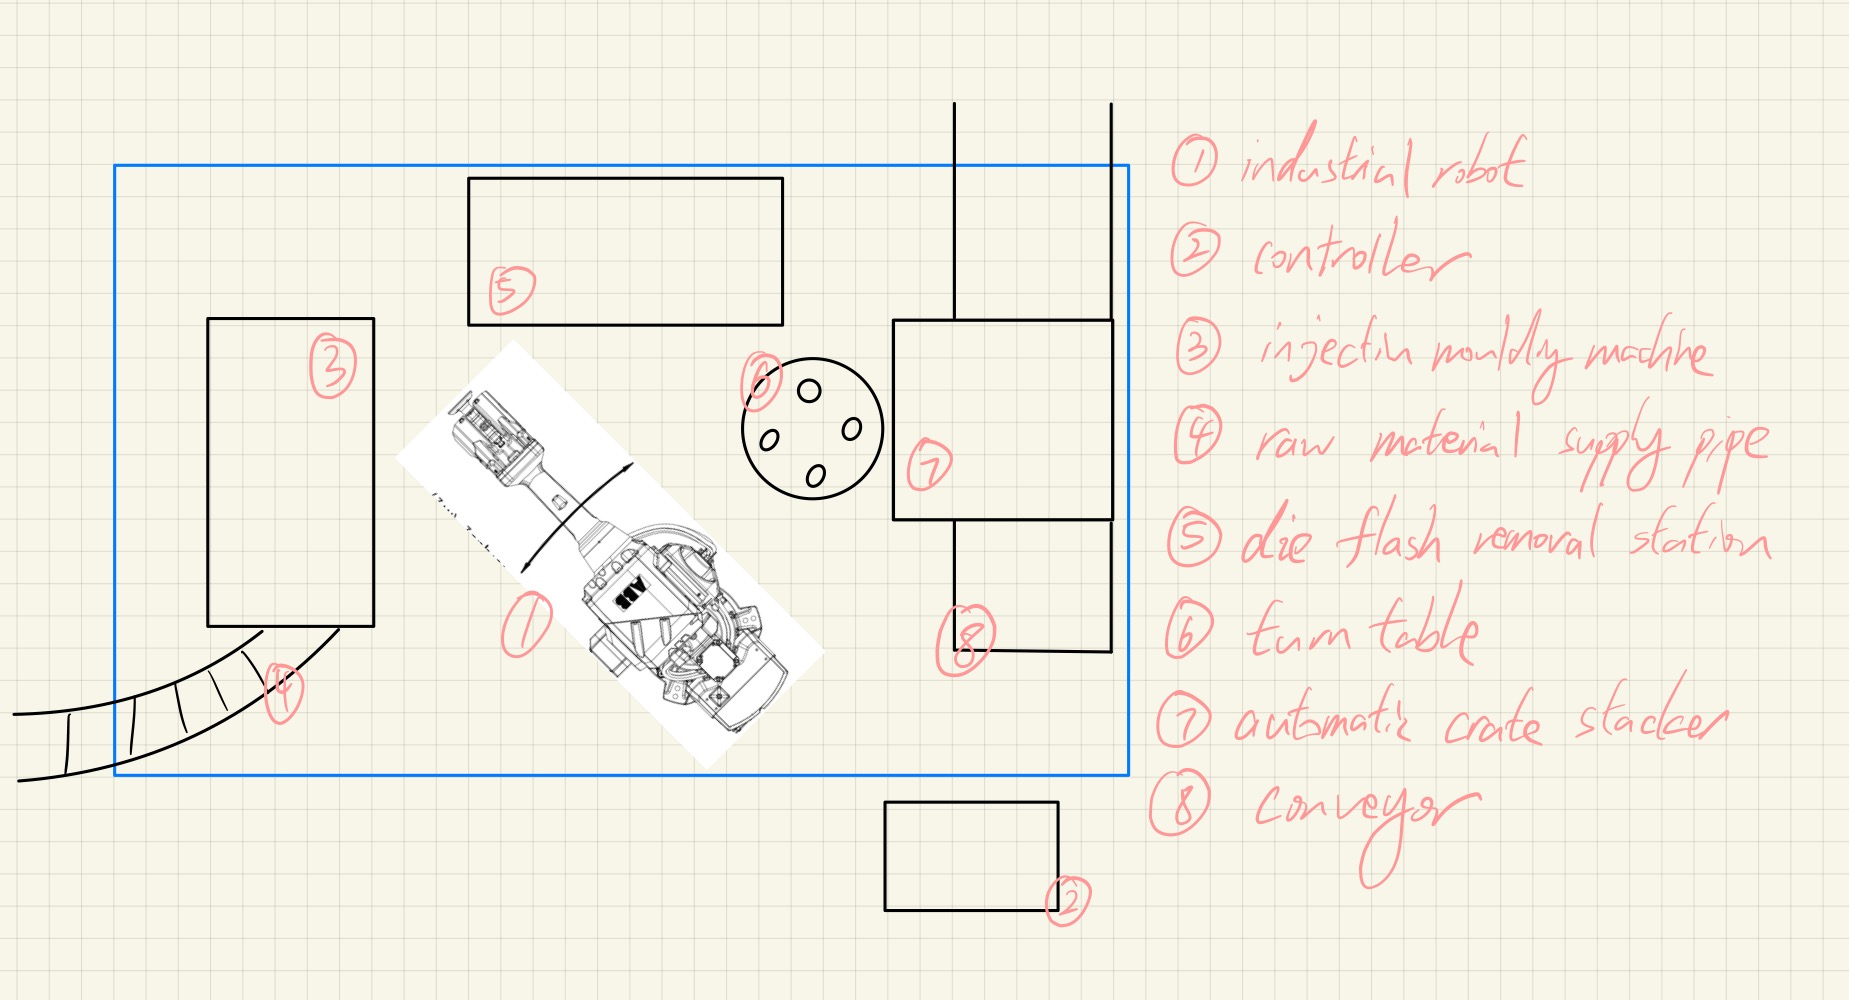 ① industrial robot
② controller
③ injection moulding machine
④ raw material supply pipe
⑤ die flash removal station
⑥ turn table
⑦ automatic crate stacker
⑧ conveyor
⑤
③
⑥
⑦
ABB
①
⑧
④
②